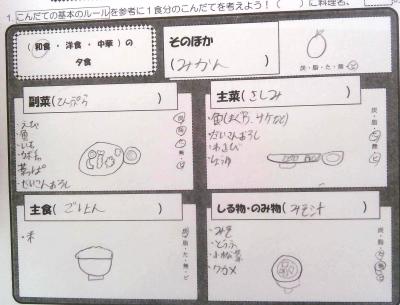 1. こんだての基本のルールを参考に1食分のこんだてを考えよう！（　　）に料理名、
（ 和食 ・ 洋食 ・ 中華 ）の
夕食
そのほか
（みかん　　　）
炭・脂・た・無・ビ
副菜（てんぷら　　　）
・えび
・魚
・いも
・だいこんおろし
主菜（さしみ　　　）
・だいこんおろし
・わさび
主食（ごはん　　　）
・米
炭・脂・た・無・ビ
しる物・のみ物（みそ汁　）
・みそ
・とうふ
・小松菜
・ワカメ
炭・脂・た・無・ビ